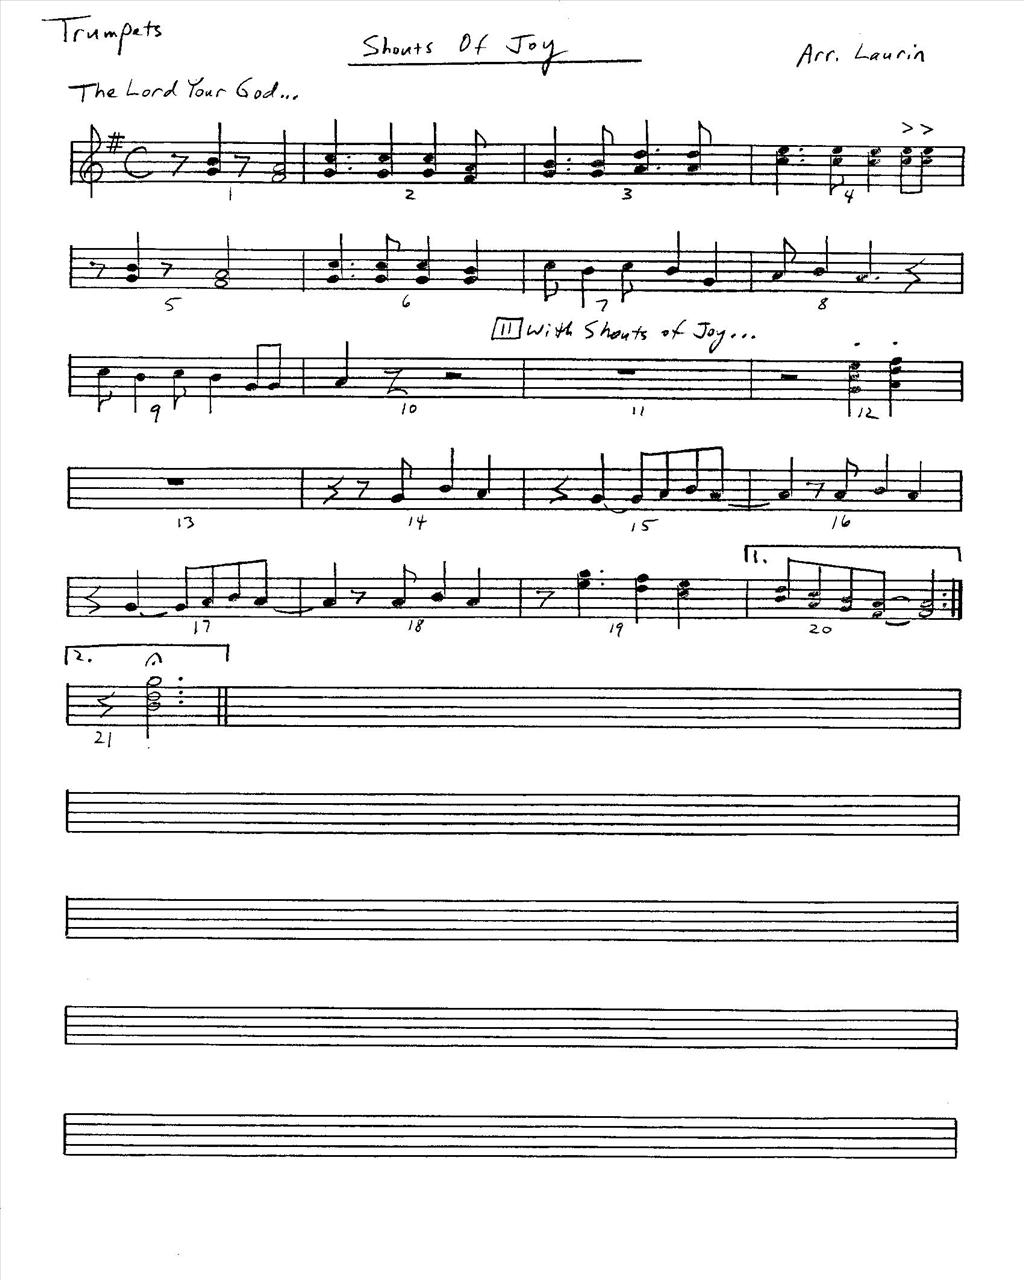 Trumpets
Shouts Of Joy
Arr. Laurin
The Lord Your God...
1 2 3 4
5 6 7 8
11 With Shouts of Joy...
9 10 11 12
13 14 15 16
1.
17 18 19 20
2.
21